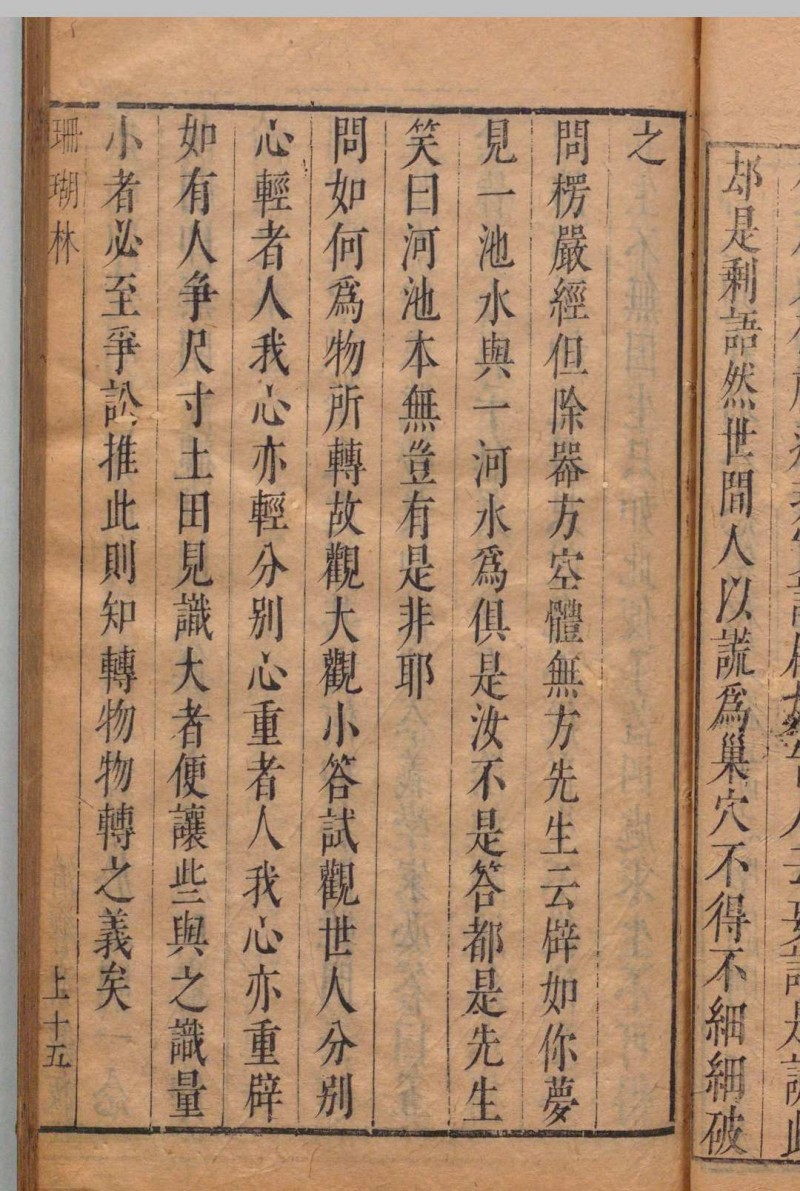 却是剩語然世間人以謊爲巢穴不得不細細破
之
問楞嚴經但除器方空體無方先生云譬如你夢
見一池水與一河水爲俱是汝不是答都是先生
笑曰河池本無豈有是非耶
問如何爲物所轉故觀大觀小答試觀世人分别
心輕者人我心亦輕分别心重者人我心亦重辟
如有人爭尺寸土田見識大者便讓些與之識量
小者必至爭訟推此則知轉物物轉之義矣
珊瑚林 上十五